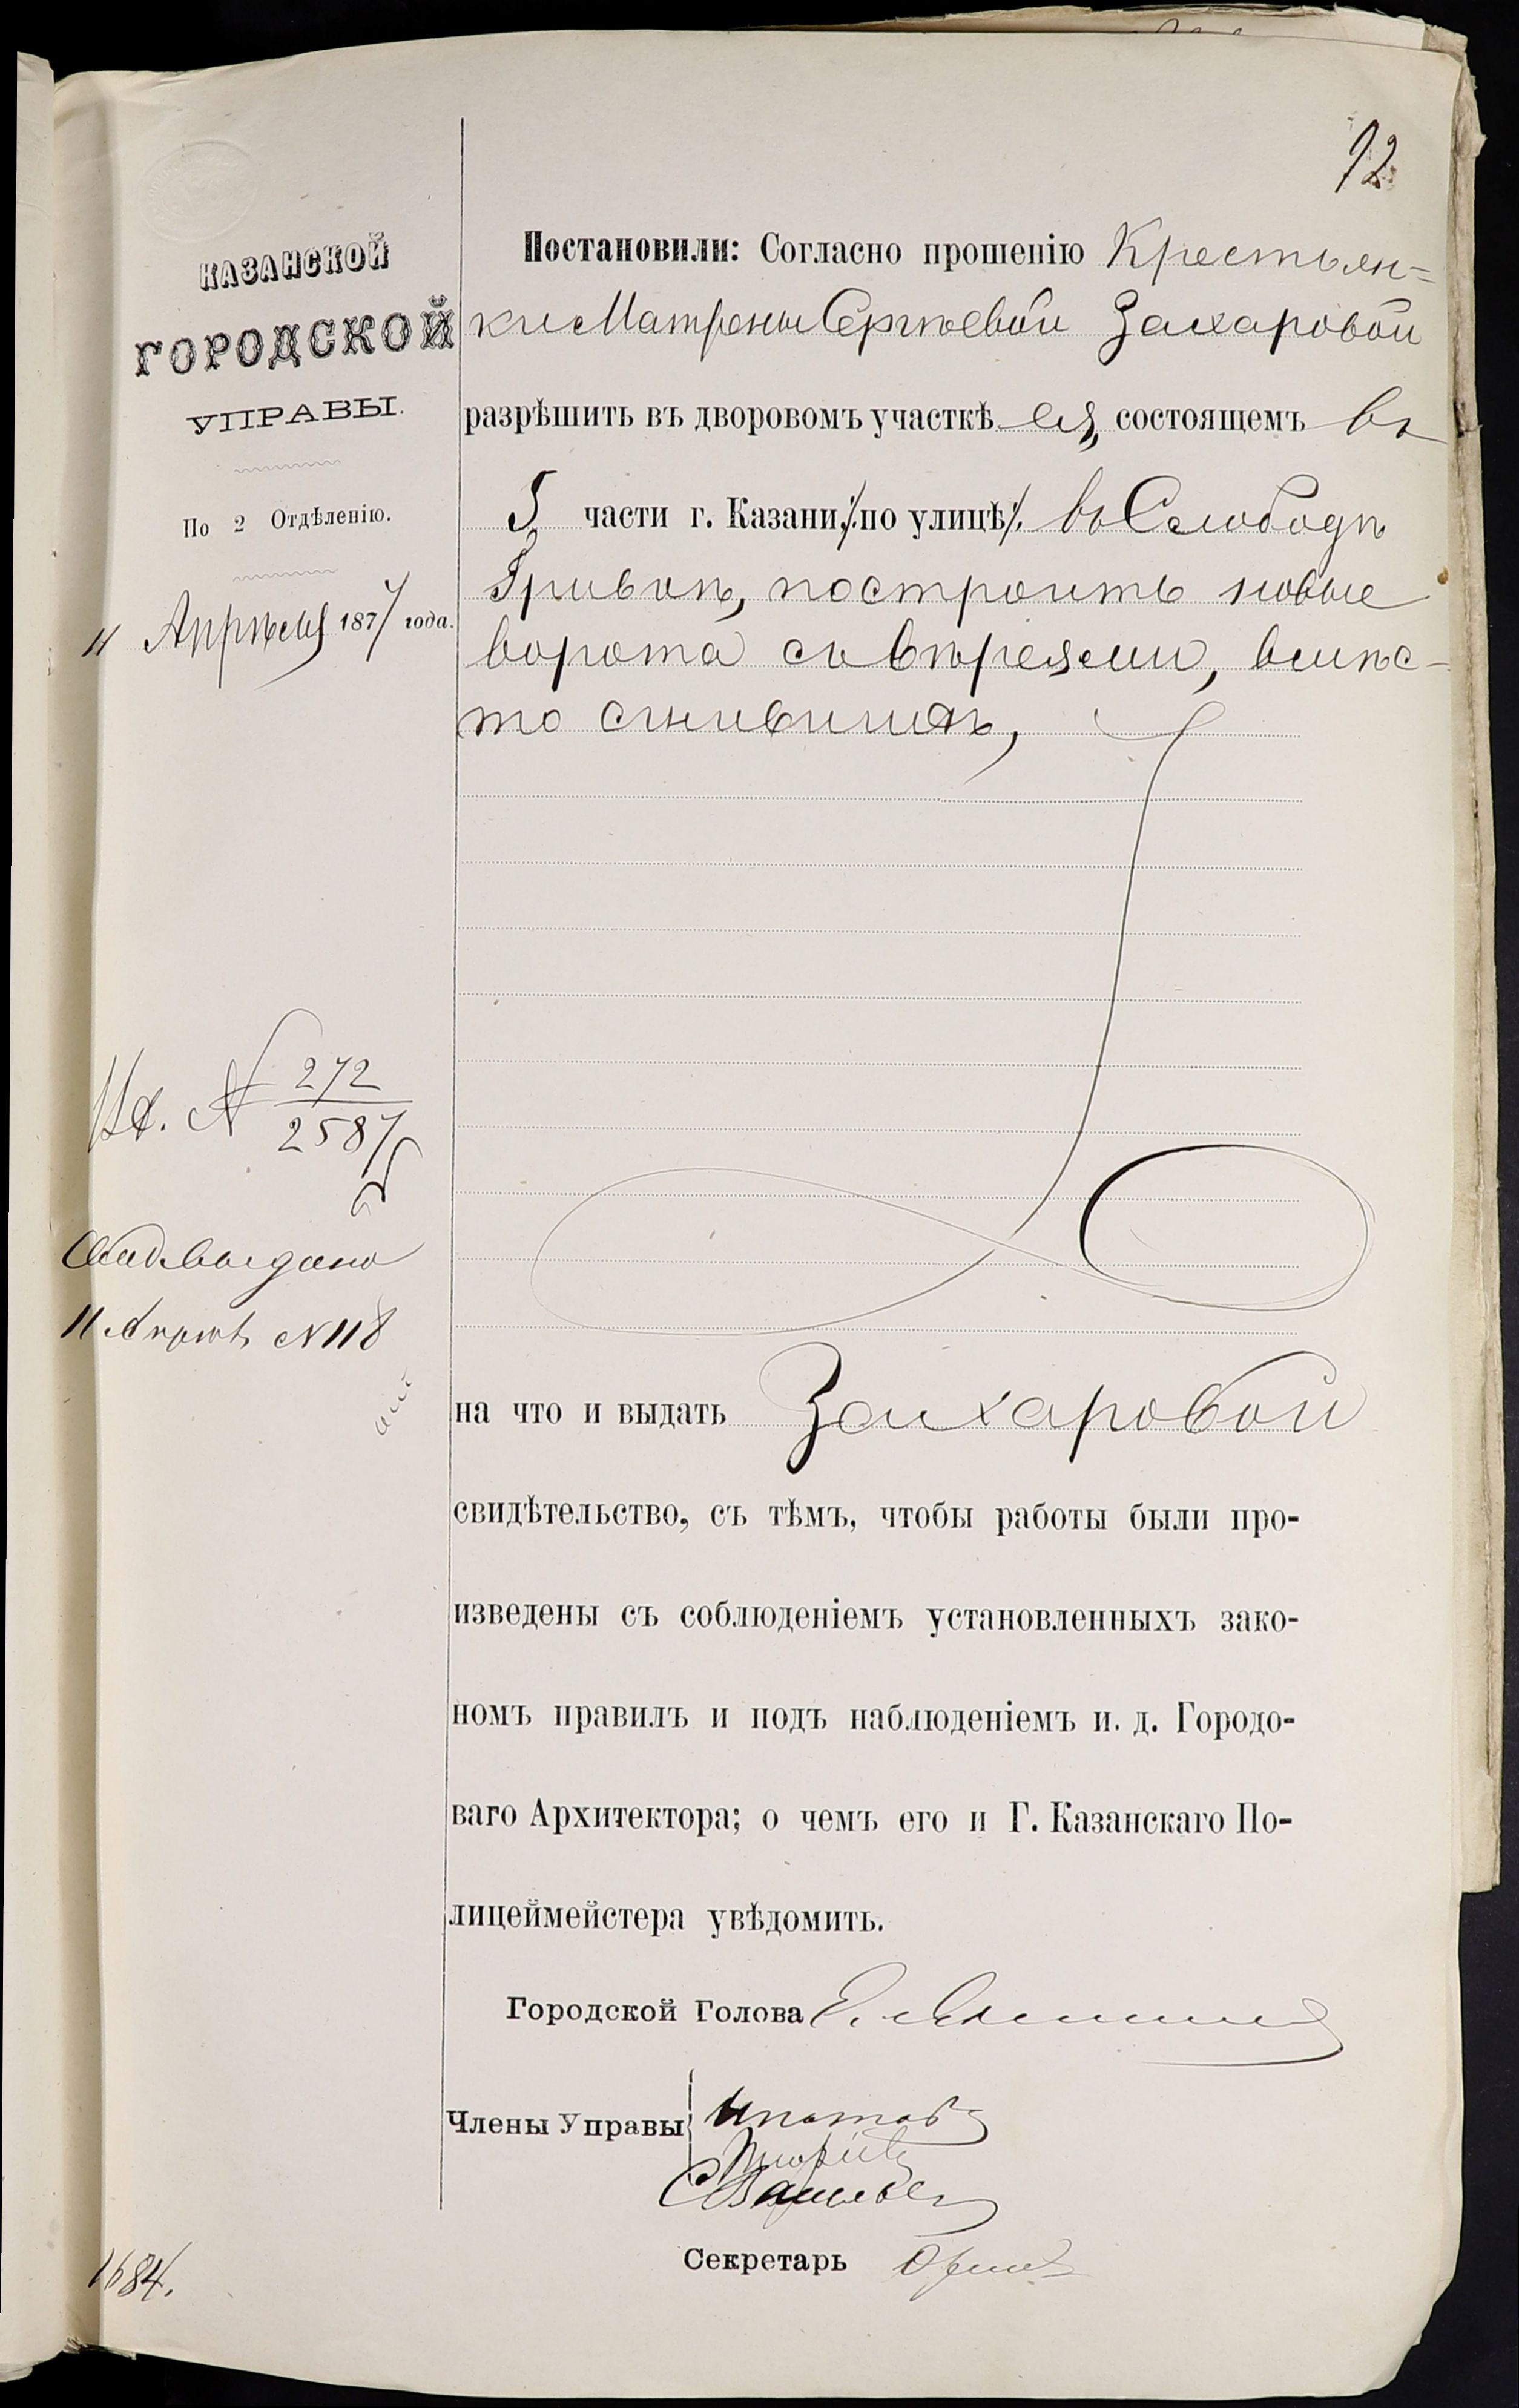 92
КАЗАНСКОЙ
ГОРОДСКОЙ
УПРАВЫ.
По 2 Отдѣленію.
11 Апрѣля 1877 года.
№ 272
2587
Свид. выдано
11 Апрѣля № 118
1684.
Постановили: Согласно прошенію Крестьян=
ки Матрены Сергѣевой Захаровой
разрѣшить въ дворовомъ участкѣ ея, состоящемъ въ
5 части г. Казани, по улицѣ въ Слободѣ
Гривкѣ, построить новые
ворота съ верѣями, вмѣс-
то сгнившихъ,
на что и выдать Захаровой
свидѣтельство, съ тѣмъ, чтобы работы были про-
изведены съ соблюденіемъ установленныхъ зако-
номъ правилъ и подъ наблюденіемъ и. д. Городо-
ваго Архитектора; о чемъ его и Г. Казанскаго По-
лицеймейстера увѣдомить.
Городской Голова
Члены Управы Ипатовъ
СВасильев
Секретарь